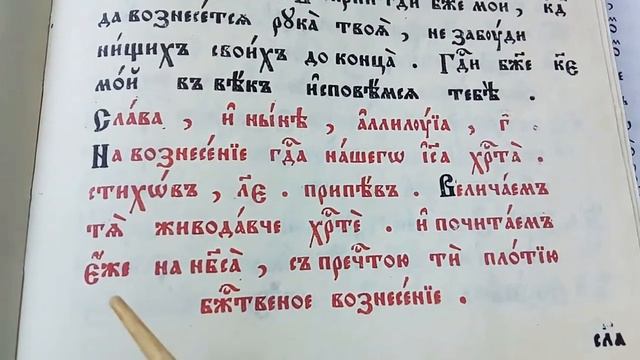 да вознесе́тсѧ рꙋка̀ твоѧ̀ , не забоу́ди
ни́щихъ свои́хъ до конца̀ . Гдⷭ҇и бж҃е
мо́й въ вѣ́къ и҆сповѣ́мсѧ тебѣ̀ .
Сла́ва , и҆ ны́нѣ , а҆ллилꙋ́їа , г҃
На вознесе́нїе гдⷭ҇а на́шегѡ і҆са хрⷭ҇та̀ .
стихѡ́въ , л҃е . припѣ́въ . Велича́емъ
тѧ̀ живода́вче хрⷭ҇тѐ . и҆ почита́емъ
є҆́же на нб҃са̀ , съ пречⷭ҇тою ти̑ пло́тїю
бжⷭ҇твеное вознесе́нїе .
сла